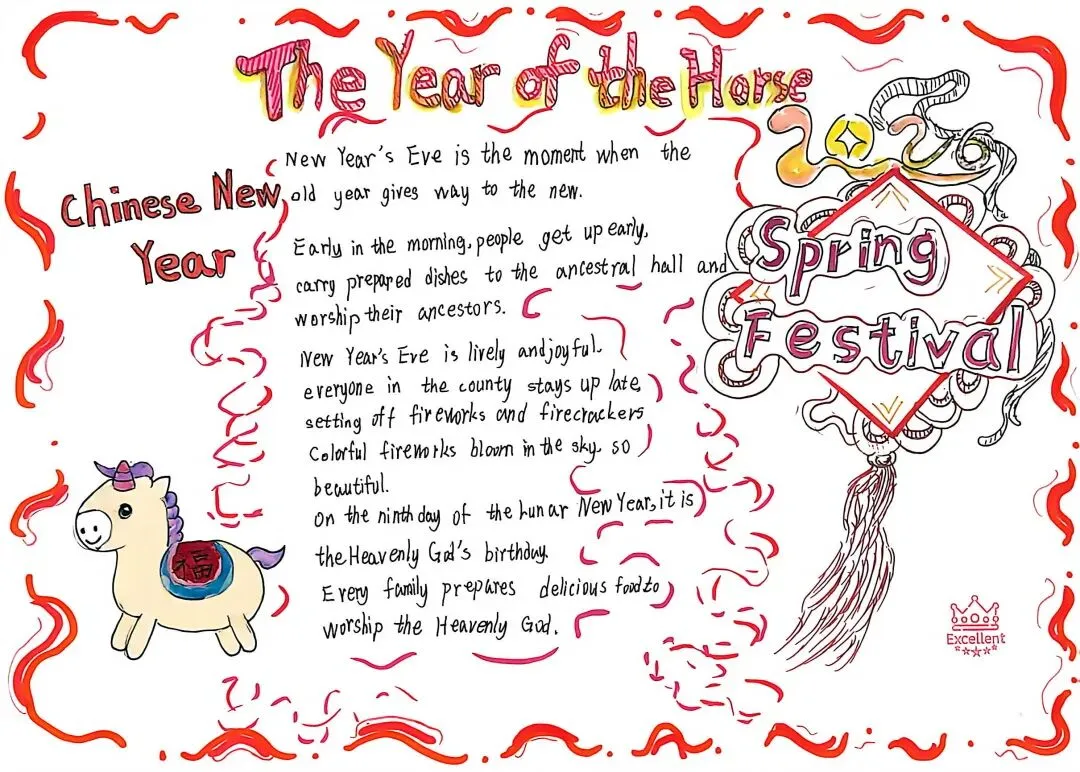 The Year of the Horse
2026
Chinese New
Year
Spring
Festival
New Year's Eve is the moment when the
old year gives way to the new.
Early in the morning, people get up early,
carry prepared dishes to the ancestral hall and
worship their ancestors.
New Year's Eve is lively and joyful.
everyone in the county stays up late,
setting off fireworks and firecrackers
Colorful fireworks bloom in the sky. so
beautiful.
On the ninth day of the Lunar New Year, it is
the Heavenly God's birthday.
Every family prepares delicious food to
worship the Heavenly God.
福
Excellent